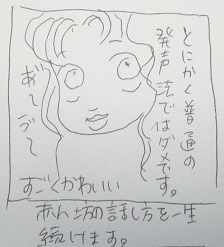 とにかく普通の
発声法ではダメです。
あ〜う〜
すごくかわいい
赤ん坊の話し方を一生
続けます。